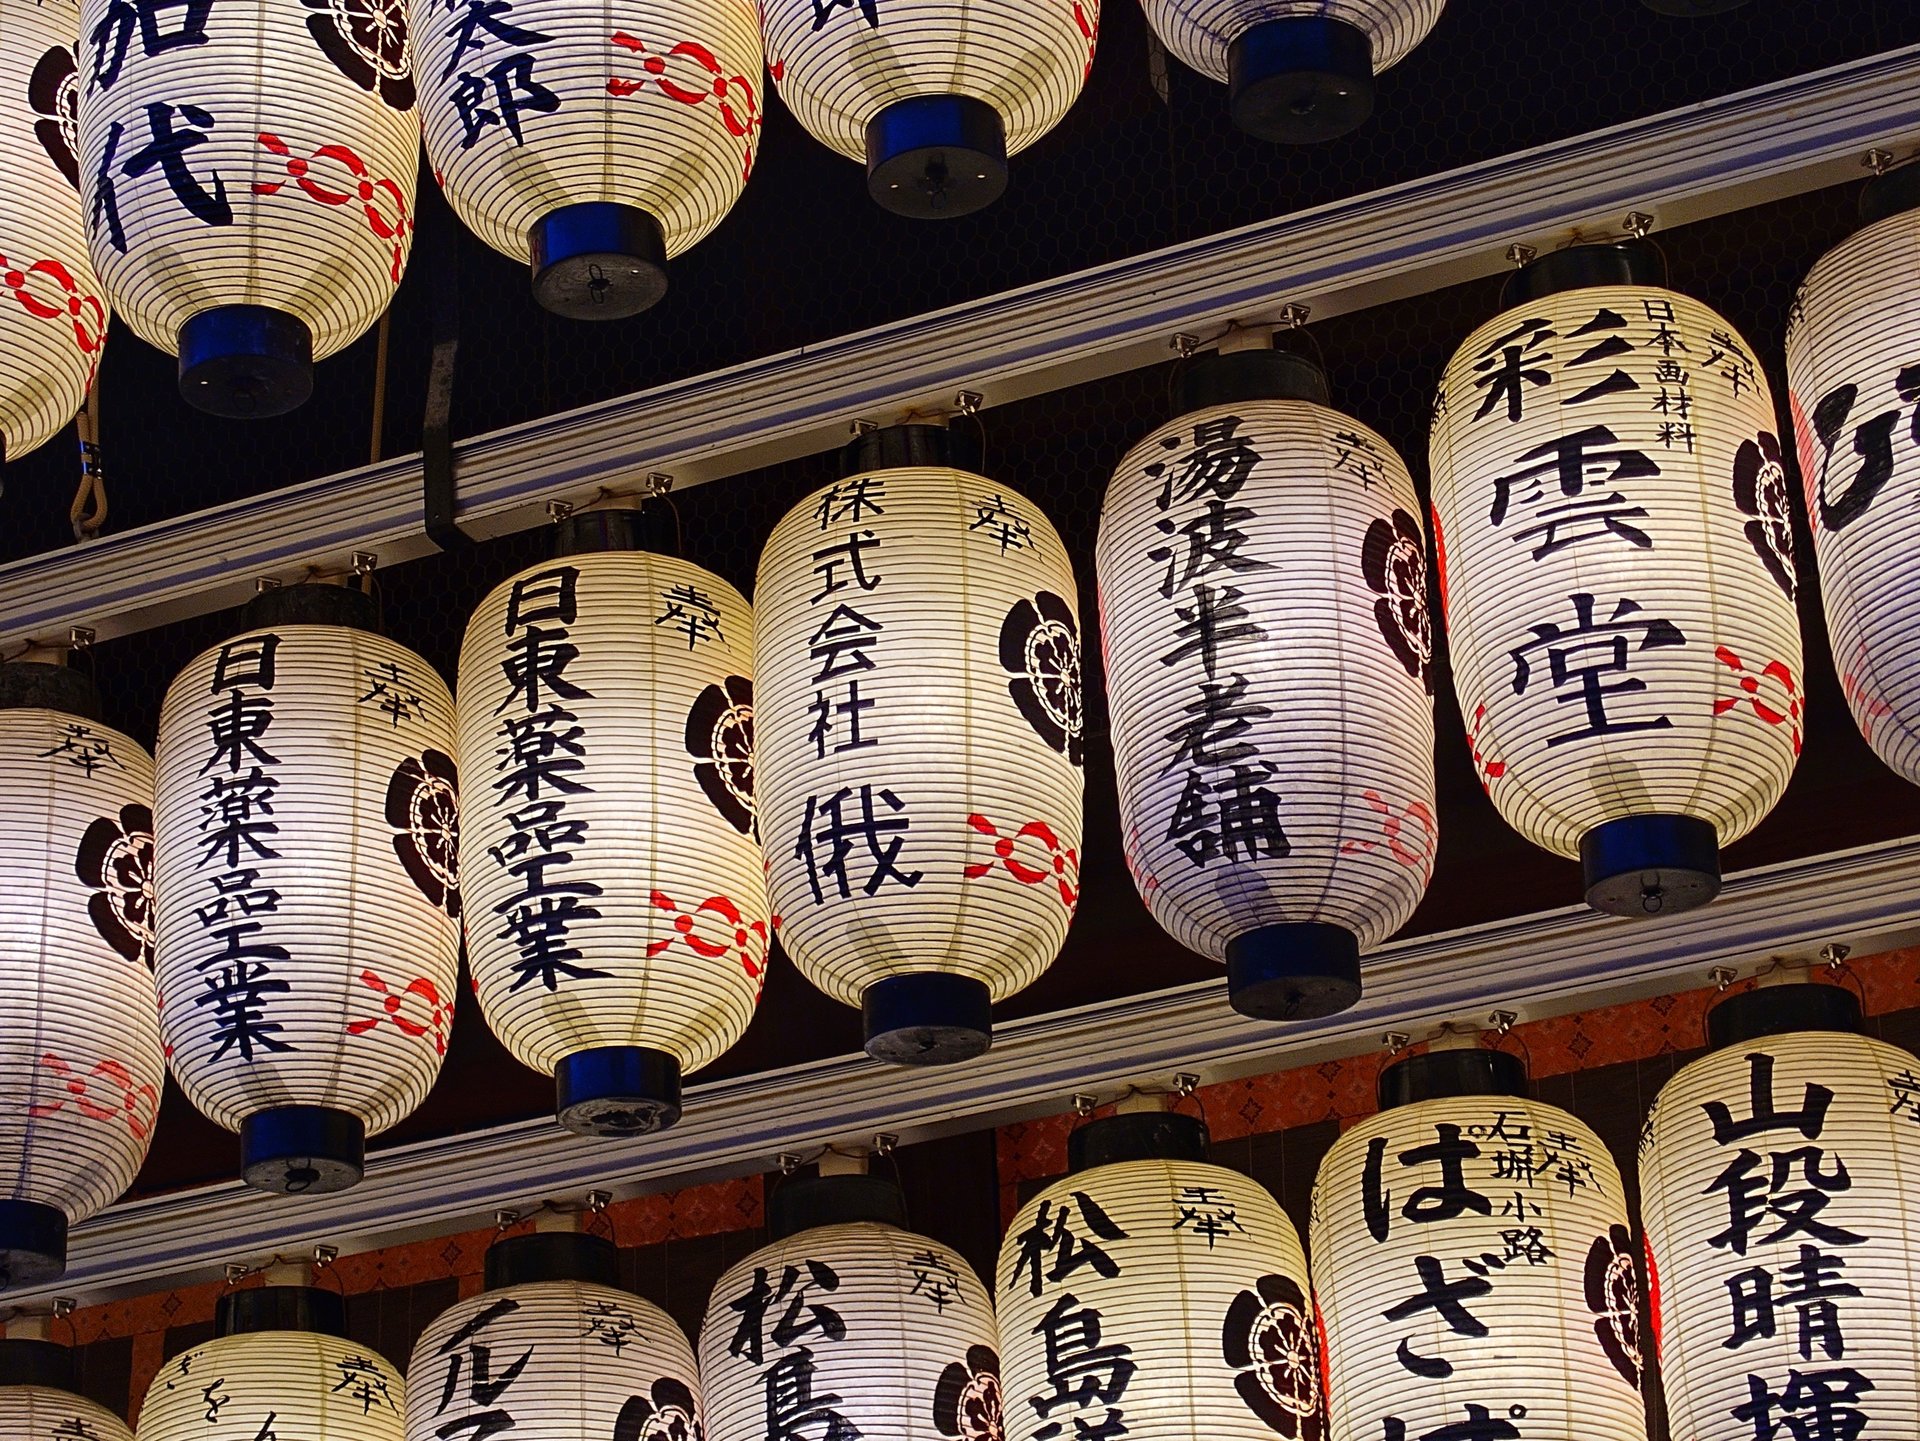 加代
太郎
郎
奉
日東薬品工業
奉
日東薬品工業
奉
株式会社 俄
奉
湯波半老舗
奉
日本画材料
彩雲堂
奉
奉
奉
ぎをん
奉
奉
松島
奉
松島
奉
石塀小路
はざ
奉
山段晴揮